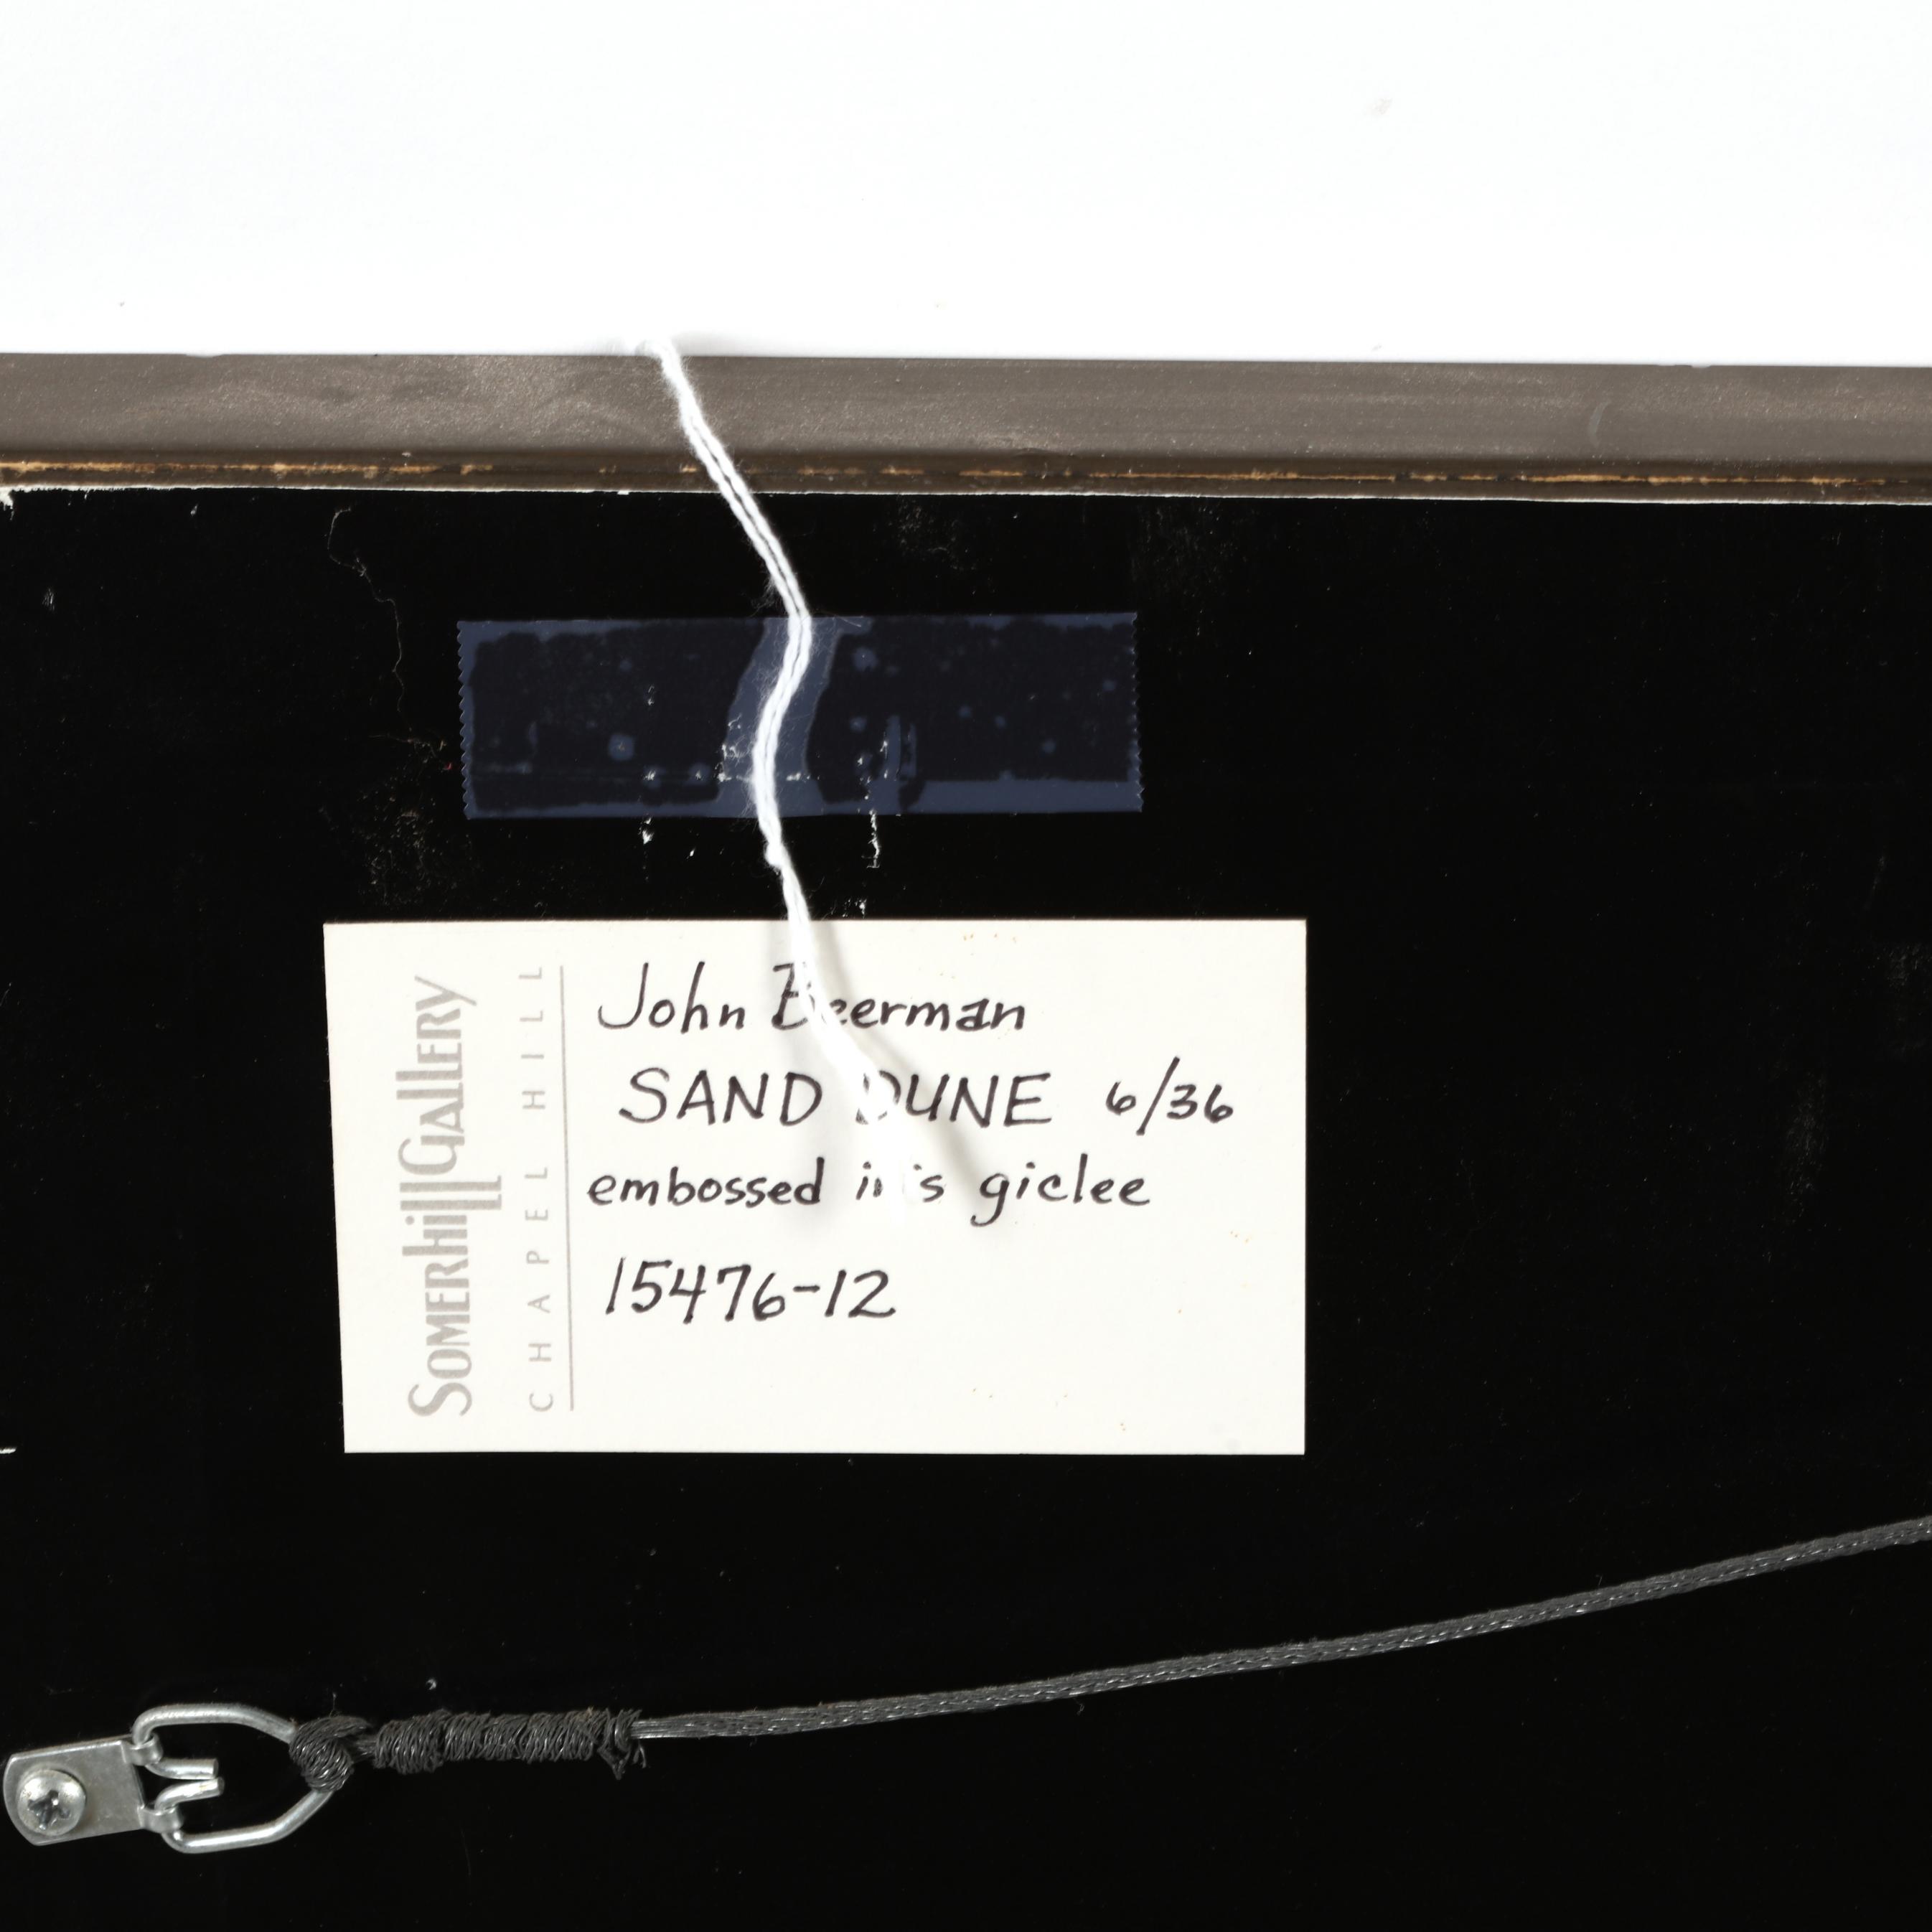 SOMERHILL GALLERY
CHAPEL HILL
John Beerman
SAND DUNE 6/36
embossed giclee
15476-12